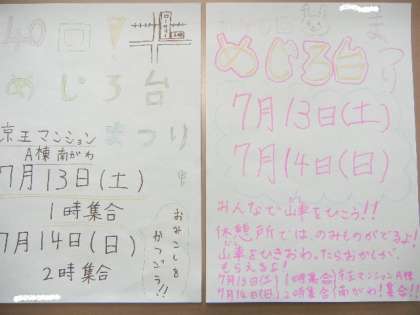 40回!
めじろ台
まつり
京王マンション
A棟 南がわ
7月13日(土)
1時集合
7月14日(日)
2時集合
おみこしを
かつごう!!
めじろ台
まつり
7月13日(土)
7月14日(日)
みんなで山車をひこう!!
休憩所では、のみものがでるよ!
山車をひきおわったらおかしが、
もらえるよ!
7月13日(土) 1時集合 京王マンションA棟
7月14日(日) 2時集合 (南がわ)集合!!